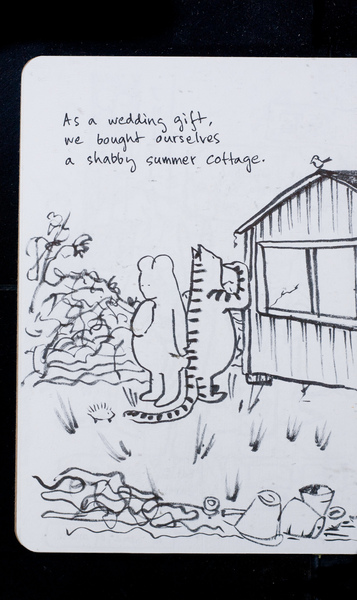 As a wedding gift,
we bought ourselves
a shabby summer cottage.